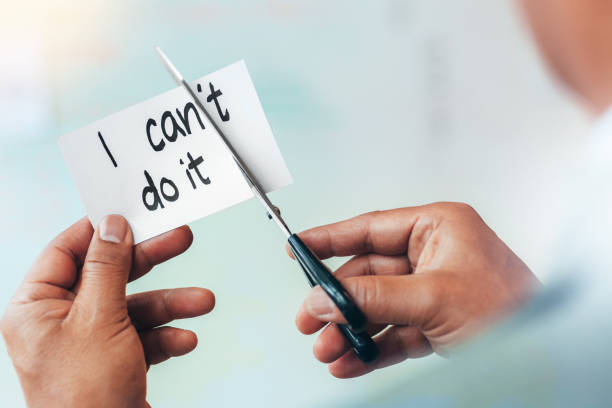 I can't
do it